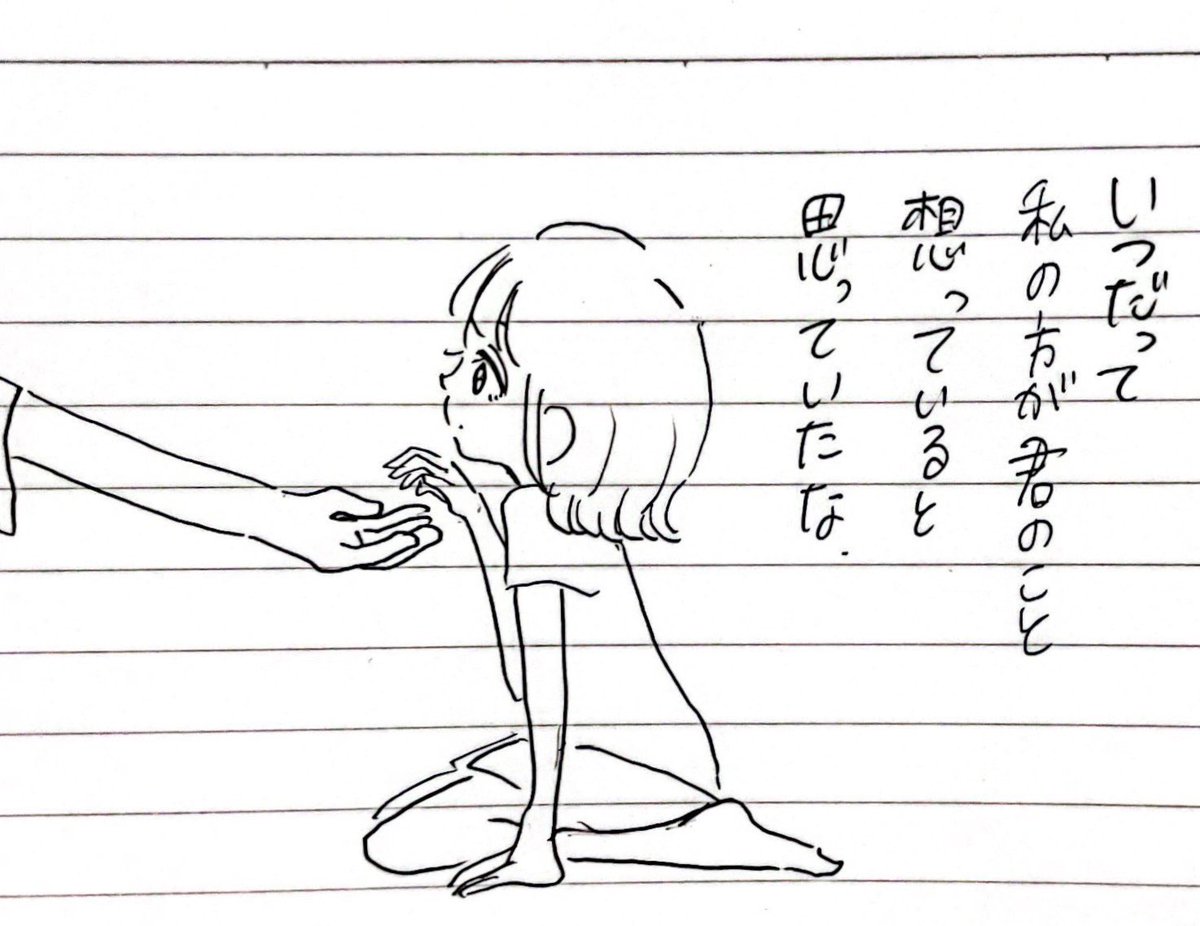 いつだって
私の方が君のこと
想っていると
思っていたな.